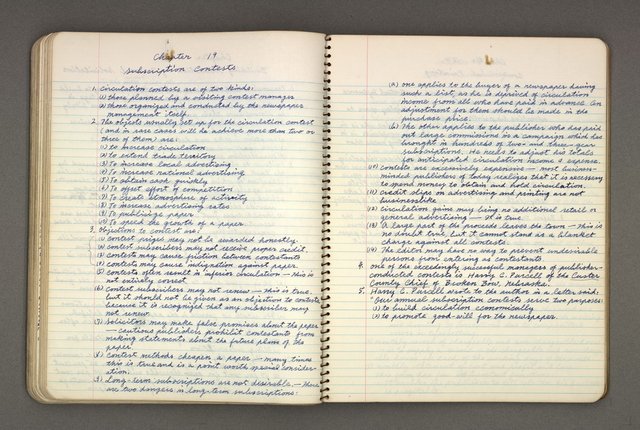 Chapter 19
Subscription Contests
1. Circulation contests are of two kinds:
(1) those planned by a visiting contest manager
(2) those organized and conducted by the newspaper
management itself.
2. The objects usually set up for the circulation contest
(and in rare cases will be achieve more than two or
three of them) are:
(1) To increase circulation
(2) To extend trade territory
(3) To increase local advertising
(4) To increase national advertising
(5) To obtain cash quickly
(6) To offset effort of competition
(7) To create atmosphere of activity
(8) To increase advertising rates
(9) To publicize paper
(10) To speed the growth of a paper.
3. Objections to contest are:
(1) Contest prizes may not be awarded honestly.
(2) Contest subscribers may not receive proper credit.
(3) Contests may cause friction between contestants
(4) Contests may cause indignation against paper.
(5) Contests often result in inferior circulation — this is
not entirely correct.
(6) Contest subscribers may not renew — this is true
but it should not be given as an objection to contests
because it is recognized that any subscriber may
not renew.
(7) Solicitors may make false promises about the paper
— cautious publishers prohibit contestants from
making statements about the future plans of the
paper.
(8) Contest methods cheapen a paper — many times
this is true and is a point worth special consider-
ation.
(9) Long-term subscriptions are not desirable. — There
are two dangers in long-term subscriptions:
(a) one applies to the buyer of a newspaper having
such a list, as he is deprived of circulation
income from all who have paid in advance (an
adjustment for them should be made in the
purchase price.
(b) The other applies to the publisher who has paid
out large commissions in a campaign which has
brought in hundreds of two- and three-year
subscriptions. He needs to adjust his totals
for anticipated circulation income & expense.
(10) Contests are excessively expensive — most business-
minded publishers today realize that it is necessary
to spend money to obtain and hold circulation.
(11) Credit slips on advertising and printing are not
businesslike
(12) Circulation gains may bring no additional retail or
general advertising — It is true.
(13) A large part of the proceeds leaves the town — this is
no doubt true, but it cannot stand as a blanket
charge against all contests.
(14) The editor may have no way to prevent undesirable
persons from entering as contestants.
4. One of the exceedingly successful managers of publisher-
conducted contests is Harry C. Purcell of the Custer
County Chief of Broken Bow, Nebraska.
5. Harry C. Purcell wrote to the author in a letter said:
"Our annual subscription contests serve two purposes:
(1) to build circulation economically
(2) to promote good-will for the newspaper